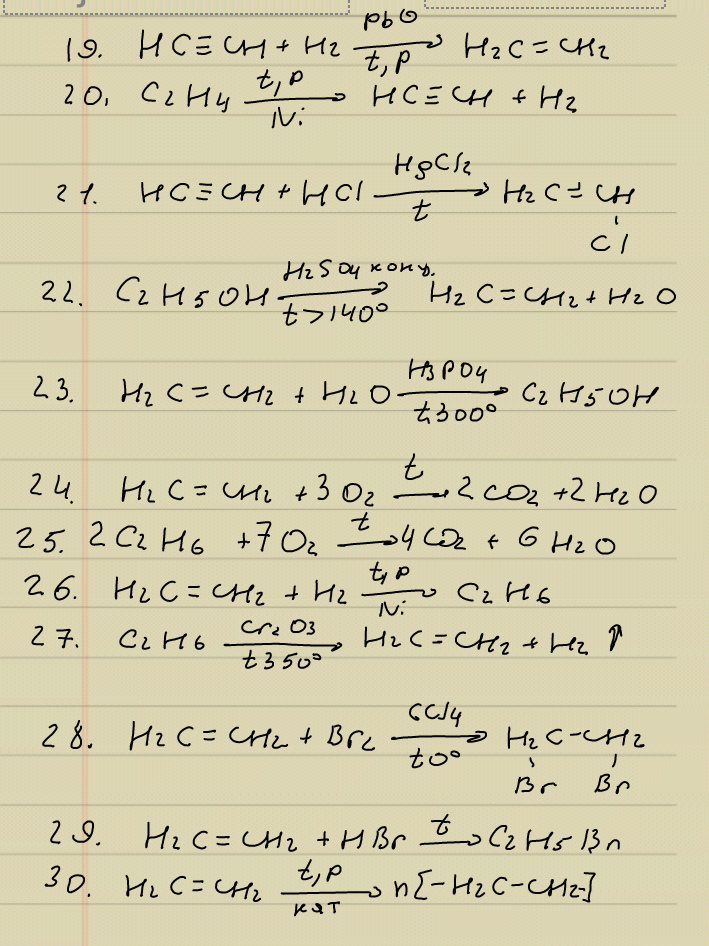 19. HC≡CH + H2 PbO/t,p → H2C=CH2
20. C2H4 t,p/Ni → HC≡CH + H2
21. HC≡CH + HCl HgCl2/t → H2C=CH
Cl
22. C2H5OH H2SO4 конц./t>140° → H2C=CH2+H2O
23. H2C=CH2 + H2O H3PO4/t,300° → C2H5OH
24. H2C=CH2 +3O2 t → 2CO2 +2H2O
25. 2C2H6 +7O2 t → 4CO2 + 6H2O
26. H2C=CH2 + H2 t,p/Ni → C2H6
27. C2H6 Cr2O3/t350° → H2C=CH2 + H2 ↑
28. H2C=CH2 + Br2 CCl4/t0° → H2C-CH2
Br Br
29. H2C=CH2 + HBr t → C2H5Br
30. H2C=CH2 t,p/кат → n[-H2C-CH2-]